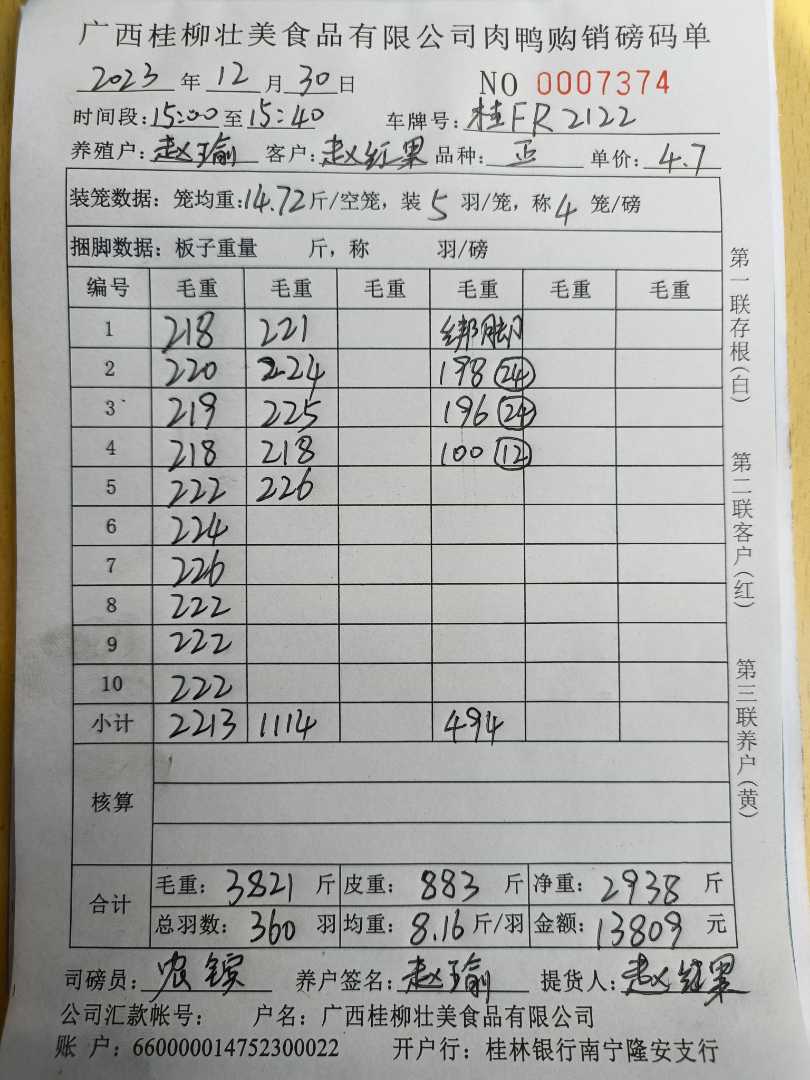 广西桂柳壮美食品有限公司肉鸭购销磅码单
2023 年 12 月 30 日 NO 0007374
时间段: 15:00 至 15:40 车牌号: 桂FR2122
养殖户: 赵瑜 客户: 赵红果 品种: 正 单价: 4.7
装笼数据: 笼均重: 14.72 斤/空笼, 装 5 羽/笼, 称 4 笼/磅
捆脚数据: 板子重量 斤, 称 羽/磅
编号 毛重 毛重 毛重 毛重 毛重 毛重
1 218 221 绑脚
2 220 224 198 (24)
3 219 225 196 (24)
4 218 218 100 (12)
5 222 226
6 224
7 226
8 222
9 222
10 222
小计 2213 1114 494
核算
合计 毛重: 3821 斤 皮重: 883 斤 净重: 2938 斤
总羽数: 360 羽 均重: 8.16 斤/羽 金额: 13809 元
司磅员: 农 养户签名: 赵瑜 提货人: 赵红果
公司汇款帐号: 户名: 广西桂柳壮美食品有限公司
账 户: 660000014752300022 开户行: 桂林银行南宁隆安支行
第一联存根(白) 第二联客户(红) 第三联养户(黄)